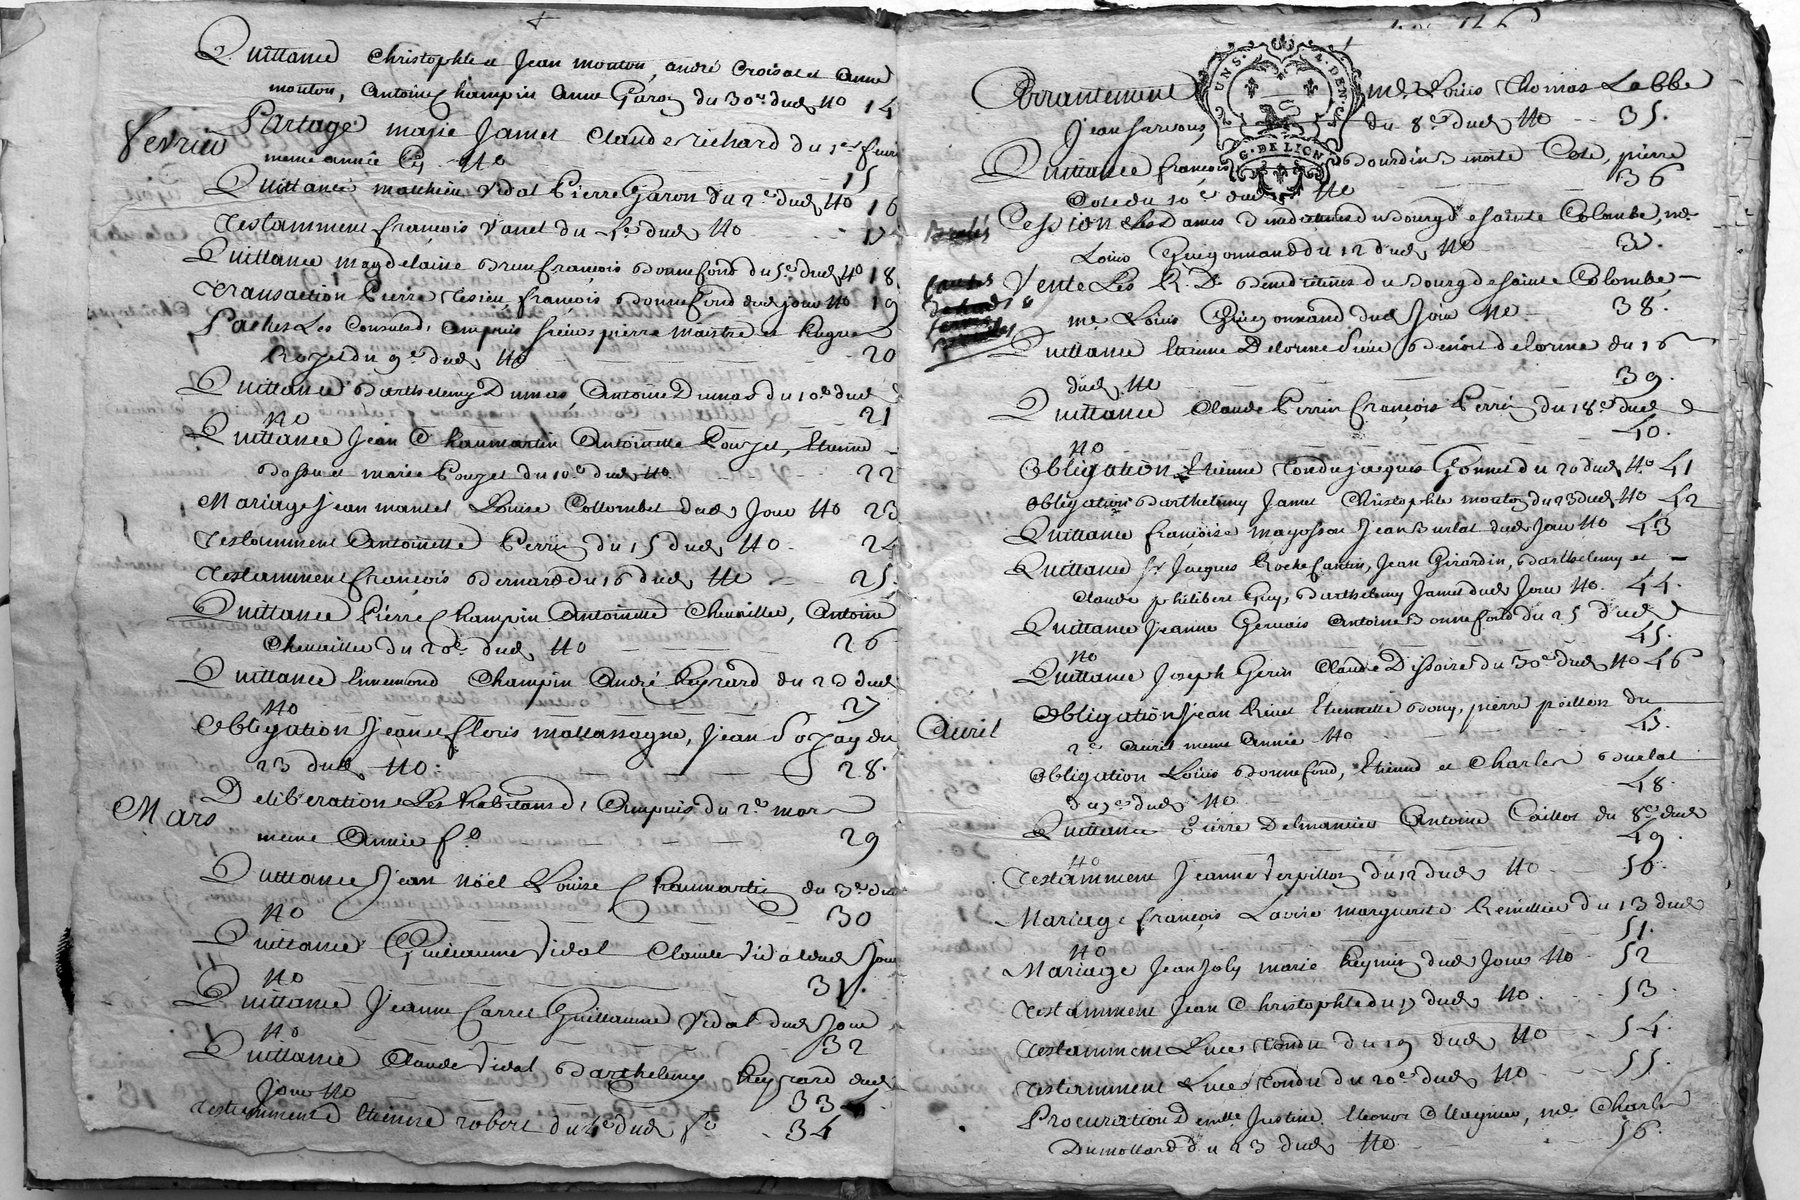 Quittance Christophle et Jean mouton, andré Croisat et anne
mouton, Antoine Champin Anne Garon du 30e dud No 14
fevrier
Partage marie Jamet Claude richard du 1er fevr
meme année No 15
Quittance mathieu Vidal Pierre Garon du 2e dud No 16
Testamment françois Vanel du 5e dud No 17
Quittance magdelaine françois Bonnefond du 5e dud No 18
Transaction Pierre françois Bonnefond dud jour No 19
Paches Les Consuls d'ampuis pierre maistre et
du 9e dud No 20
Quittance Barthelemy Dumas, Antoine Dumas du 10e dud
No 21
Quittance Jean Chaumartin Antoinette Pouzet, Etienne
et marie Pouzet du 10e dud No 22
Mariage Jean mantel Louise Collombet dud Jour No 23
Testamment Antoinette Perrin du 15 dud No 24
Testamment françois Bernard du 16 dud No 25.
Quittance Pierre Champin Antoinette Chevallier, Antoine
Chevallier du 20e dud No 26
Quittance Ennemond Champin André du 20 dud
No 27
Obligation Jean et floris mallamagne, Jean du
23 dud No. 28.
Mars
Deliberation Les habitans d'Ampuis du 2e mars
meme Année fo 29
Quittance Jean noël Louise Chaumartin du 3e dud
No 30
Quittance Guillaume Vidal Claude Vidal dud Jour
No 31.
Quittance Jeanne Carret Guillaume Vidal dud Jour
No 32
Quittance Claude Vidal Barthelemy dud
Jour No 33
Testamment Etienne robert du 4e dud fo 34
G. DE LION
UNS. 4. DEN.
Arrantement me Louis Thomas Labbe
Jean du 8e dud No 35.
Quittance françois Bourdin Cote, pierre
Cote du 10e dud No 36
Cession Les Dames Benedictines du Bourg de sainte Colombe, me
Louis Guigonnand du 12 dud No 37.
Vente Les R. D. Benedictines du Bourg de sainte Colombe,
me Louis Guigonnand dud Jour No 38.
Quittance Etienne Delorme Benoit delorme du 16
dud No 39.
Quittance Claude Perrin françois Perrin du 18e dud
No 40.
Obligation Etienne Tondu Jacques Gonnet du 20 dud No 41
Obligation Barthelemy Jamet Christophle mouton du 23 dud No 42
Quittance françoise Jean Burlat dud Jour No 43
Quittance sr Jacques Jean Girardin, Barthelemy et
Claude philibert Guy, Barthelemy Jamet dud Jour No. 44.
Quittance Jeanne Gervais Antoine Bonnefond du 25 dud
No 45.
Quittance Joseph Gerin Claude Dissoire du 30e dud No 46
Avril
Obligation Jean Rivet Etiennette Bony, pierre du
2e avril meme Année No 47.
Obligation Louis Bonnefond, Etienne et Charles Burlat
du 7e dud No 48.
Quittance Pierre Antoine Caillot du 8e dud
No 49.
Testamment Jeanne Verpillon du 12 dud No 50.
Mariage françois Lavire marguerite Remillier du 13 dud
No 51.
Mariage Jean Joly marie dud Jour No 52
Testamment Jean Christophle du 17 dud No. 53.
Testamment Luce Tondu du 19 dud No 54.
Testamment Luce Tondu du 20e dud No 55.
Procuration Demlle Justine Eleonor me Charles
Dumollard du 23 dud No 56.